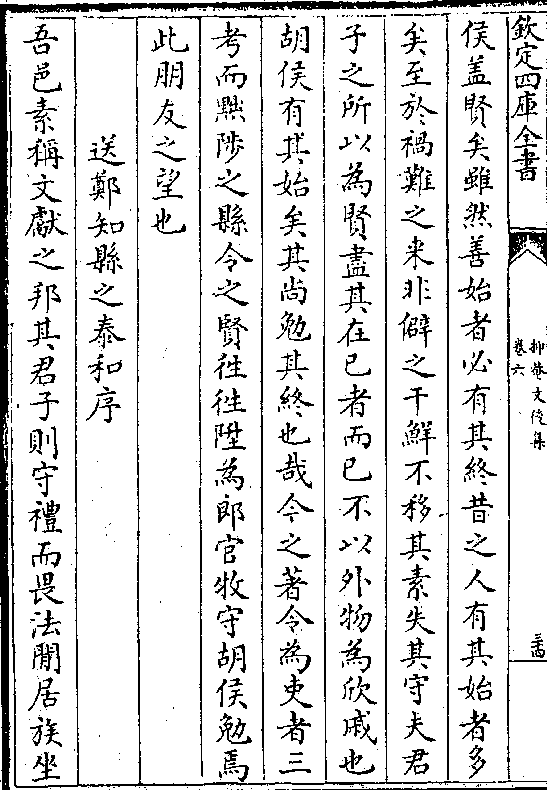 欽定四庫全書
抑菴文後集
卷六
三四
侯盖賢矣雖然善始者必有其終昔之人有其始者多
矣至於禍難之来非僻之干鮮不移其素失其守夫君
子之所以為賢盡其在已者而已不以外物為欣戚也
胡侯有其始矣其尚勉其終也哉今之著令為吏者三
考而黜陟之縣令之賢徃徃陞為郎官牧守胡侯勉焉
此朋友之望也
送鄭知縣之泰和序
吾邑素稱文獻之邦其君子則守禮而畏法閒居族坐